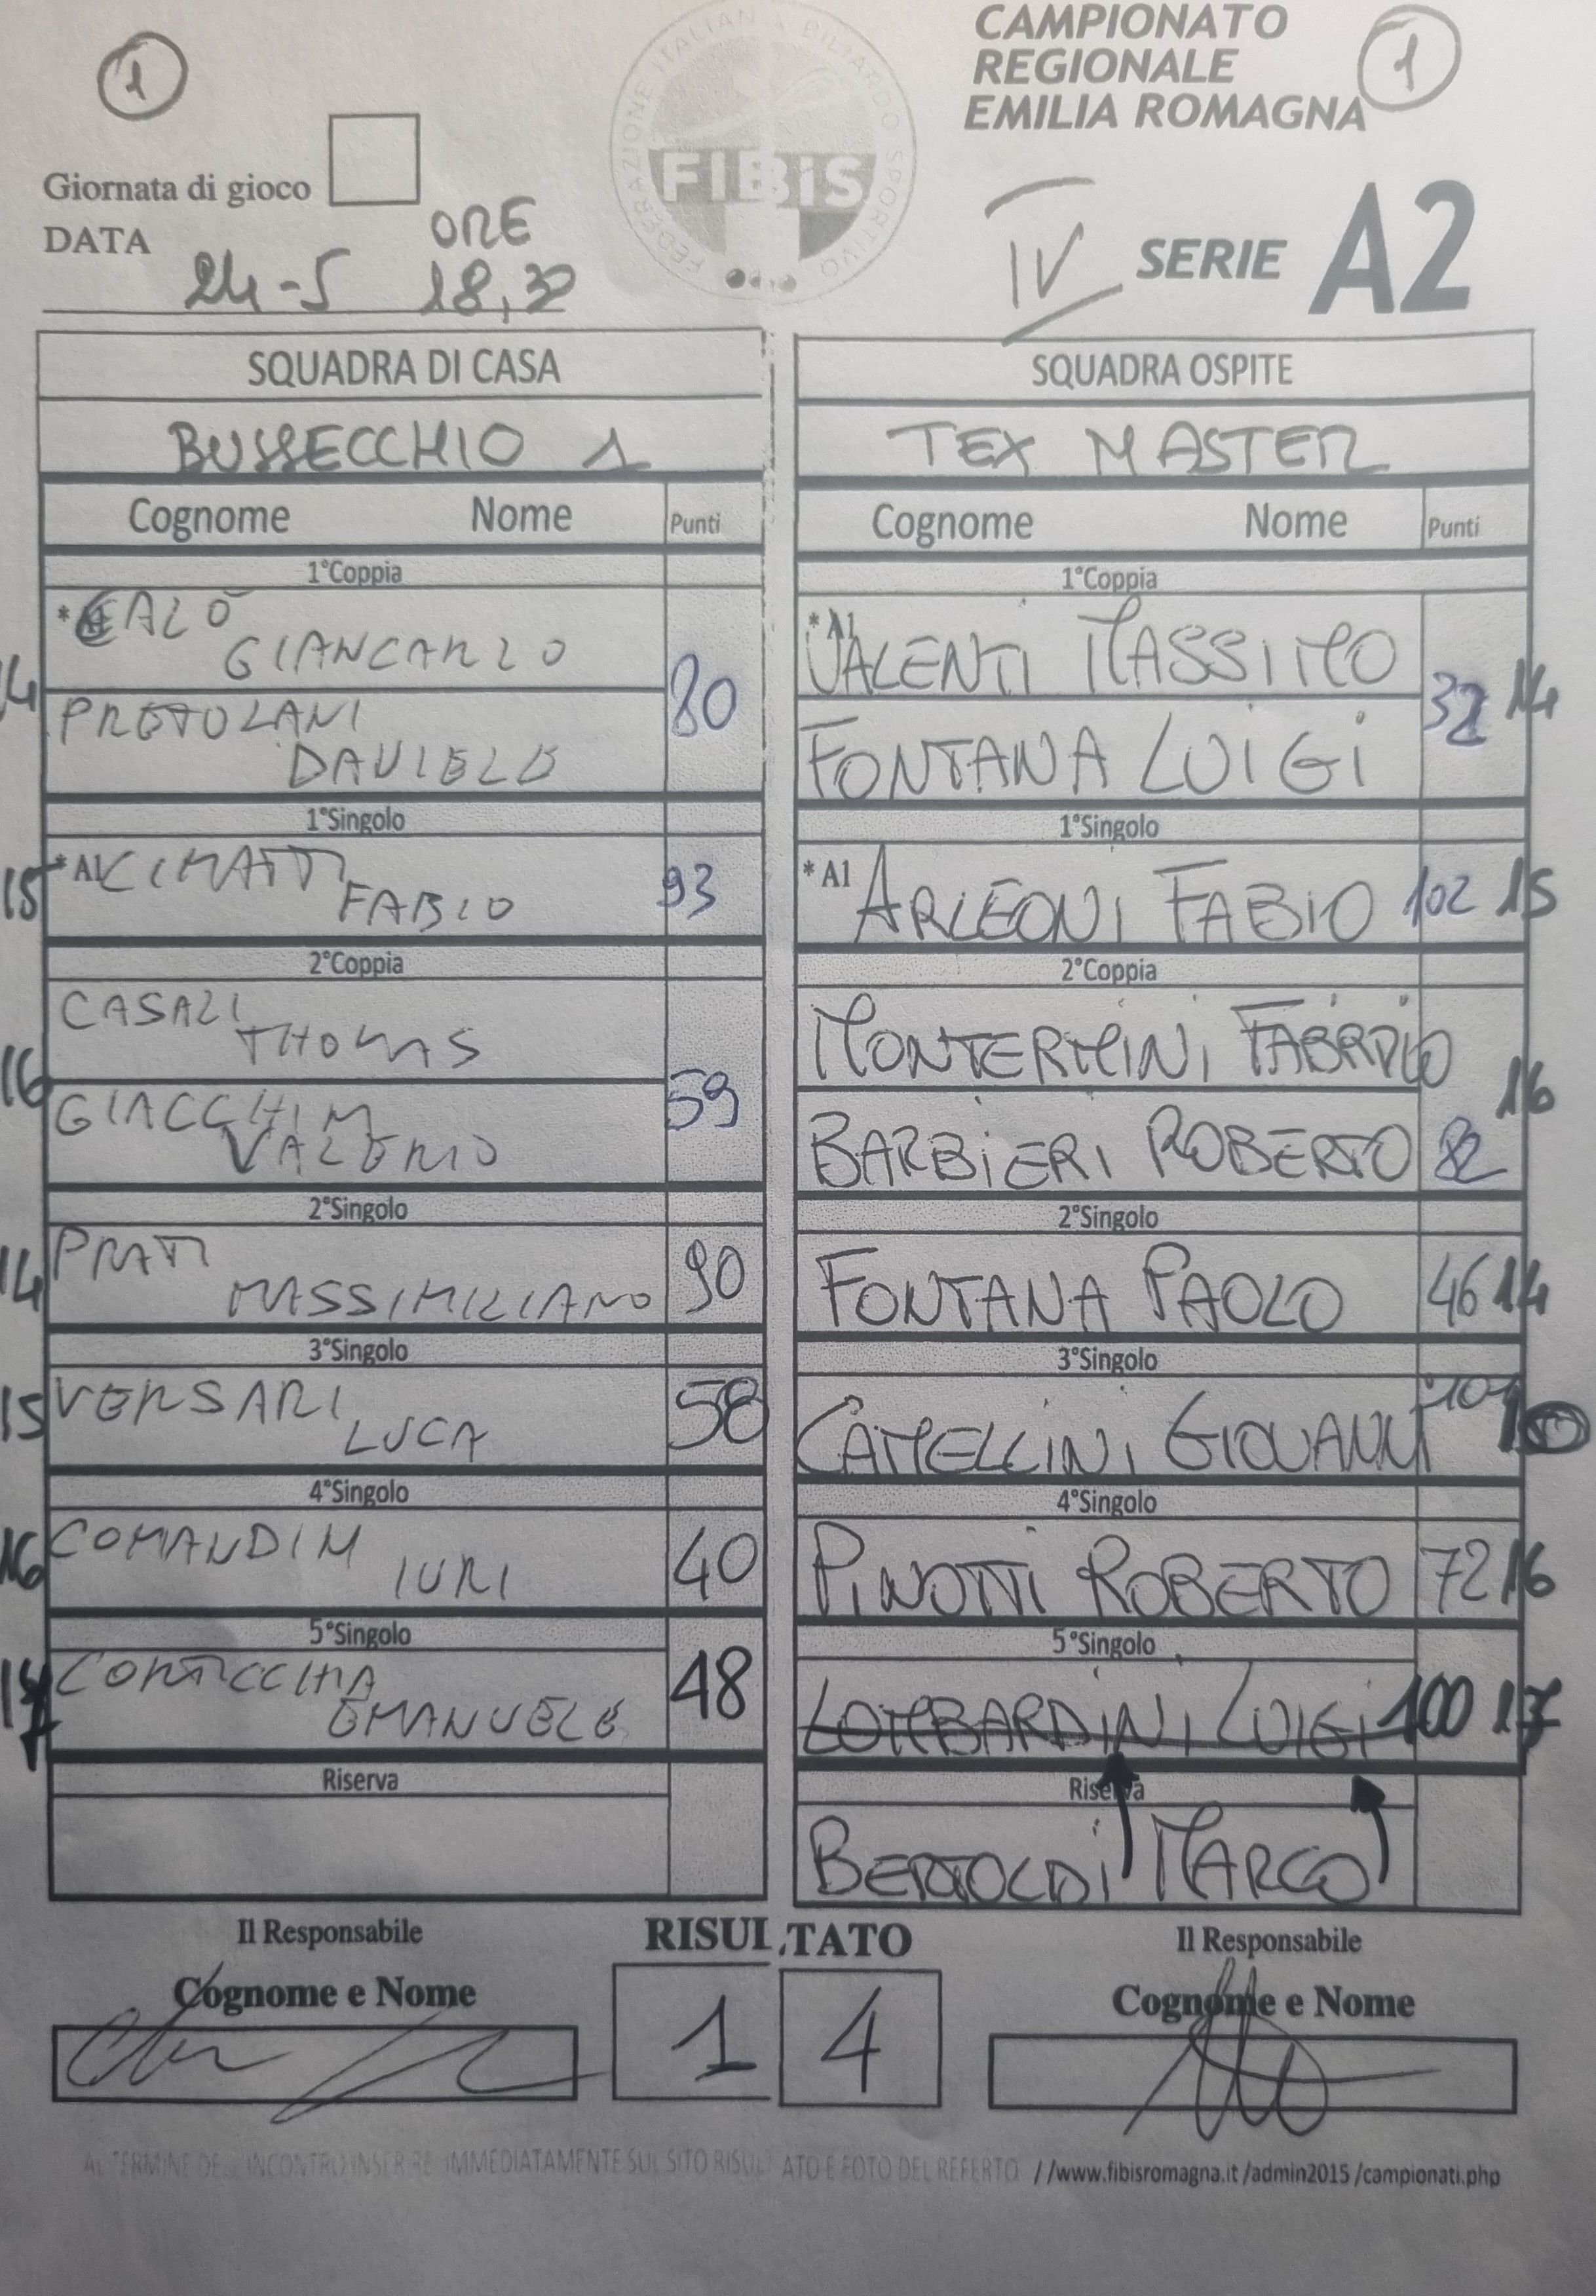 1
CAMPIONATO
REGIONALE
EMILIA ROMAGNA
1
FEDERAZIONE ITALIANA BILIARDO SPORTIVO
FIBiS
Giornata di gioco
DATA
24-5
ORE
18,30
IV SERIE A2
SQUADRA DI CASA
BUSSECCHIO 1
Cognome Nome Punti
1°Coppia
*CALÒ
GIANCARLO
14 80
PRETOLANI
DANIELE
1°Singolo
15 *A1 CIMATTI
FABIO 93
2°Coppia
CASALI
THOMAS
16 59
GIACCHINI
VALERIO
2°Singolo
14 PRATI
MASSIMILIANO 90
3°Singolo
15 VERSARI
LUCA 58
4°Singolo
16 COMANDINI
IURI 40
5°Singolo
17
EMANUELE 48
Riserva
SQUADRA OSPITE
TEX MASTER
Cognome Nome Punti
1°Coppia
*A1
VALENTI MASSIMO
32 14
FONTANA LUIGI
1°Singolo
*A1 ARLEONI FABIO 102 15
2°Coppia
MONTERMINI FABRIZIO
16
BARBIERI ROBERTO 82
2°Singolo
FONTANA PAOLO 46 14
3°Singolo
CAMELLINI GIOVANNI
4°Singolo
PINOTTI ROBERTO 72 16
5°Singolo
LOMBARDINI LUIGI 100 17
Riserva
BERTOLDI MARCO
Il Responsabile
Cognome e Nome
RISULTATO
1 4
Il Responsabile
Cognome e Nome
AL TERMINE DELL'INCONTRO INSERIRE IMMEDIATAMENTE SUL SITO RISULTATO E FOTO DEL REFERTO //www.fibisromagna.it /admin2015 /campionati.php